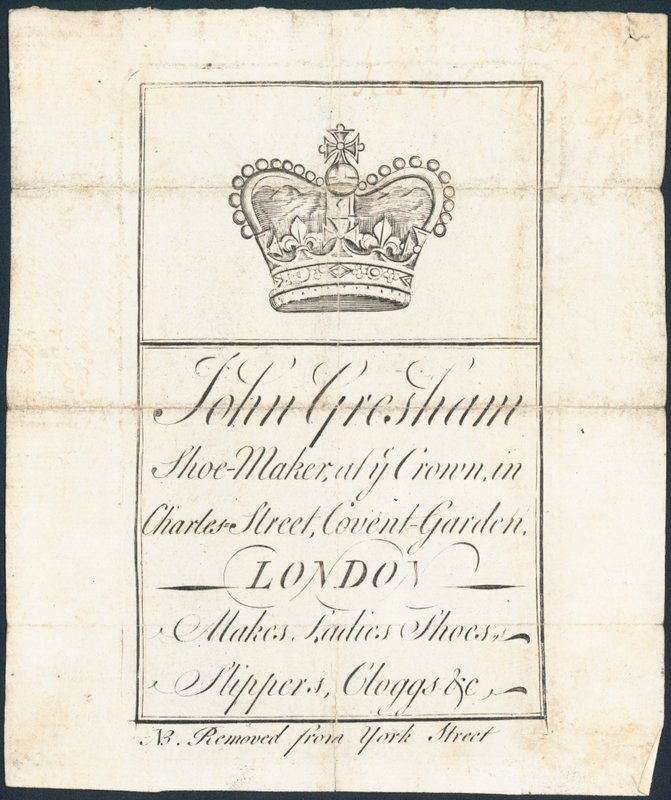 John Gresham
Shoe-Maker, at yͤ Crown, in
Charles=Street, Covent-Garden,
LONDON
Makes Ladies Shoes,
Slippers, Cloggs &c
NB. Removed from York Street